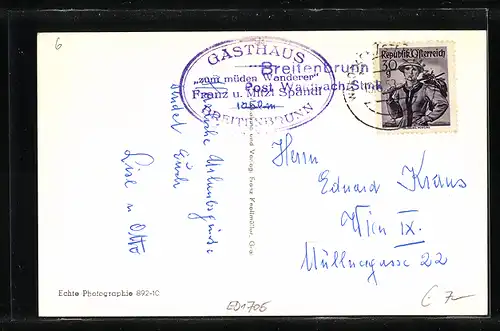 6
GASTHAUS
„zum müden Wanderer"
Franz u. Mitzi Spandl
1050 m
BREITENBRUNN
Breitenbrunn
Post Waldbach, Stmk
Republik Österreich
30 g
Herzliche Urlaubsgrüsse
sendet Euch
Lisl u Otto
und Verlag: Franz Knollmüller, Graz
Herrn
Eduard Kraus
Wien IX.
Müllnergasse 22
Echte Photographie 892-10
ED1706
€ 7,-